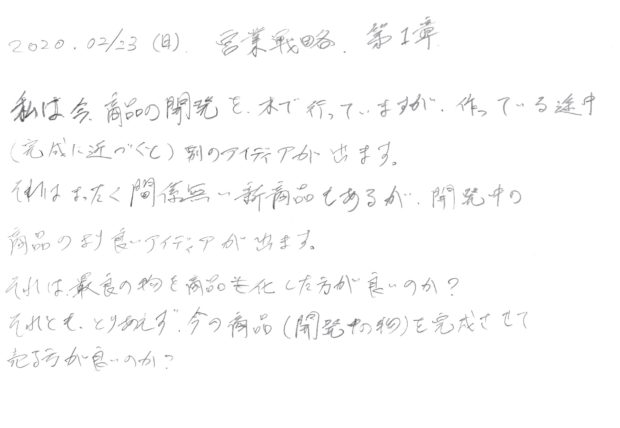 2020.02/23 (日). 営業戦略. 第1章
私は今、商品の開発を、木で行っていますが、作っている途中
(完成に近づくと) 別のアイディアが出ます。
それはまったく関係無い新商品もあるが、開発中の
商品のより良いアイディアが出ます。
それは、最良の物を商品化した方が良いのか?
それとも、とりあえず、今の商品(開発中の物)を完成させて
売る方が良いのか?